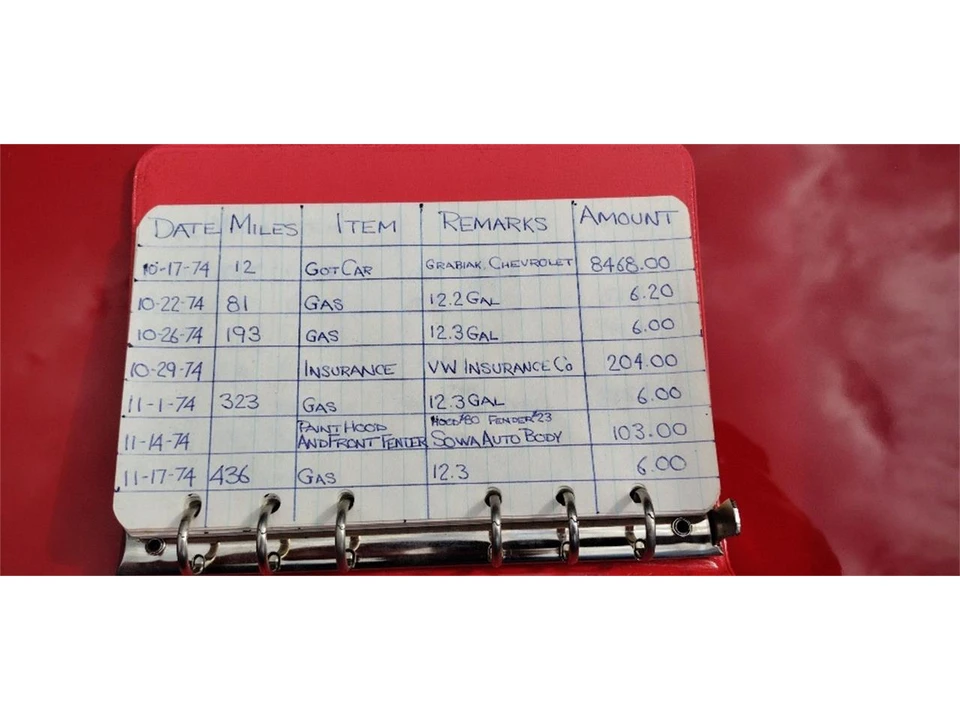 DATE MILES ITEM REMARKS AMOUNT
10-17-74 12 GOT CAR GRABIAK CHEVROLET 8468.00
10-22-74 81 GAS 12.2 GAL 6.20
10-26-74 193 GAS 12.3 GAL 6.00
10-29-74 INSURANCE VW INSURANCE CO 204.00
11-1-74 323 GAS 12.3 GAL 6.00
PAINT HOOD HOOD $80 FENDER $23
11-14-74 AND FRONT FENDER SOWA AUTO BODY 103.00
11-17-74 436 GAS 12.3 6.00